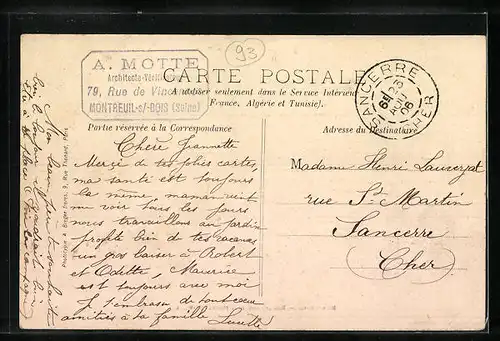 A. MOTTE
Architecte-Vérificateur
79, Rue de Vincennes
MONTREUIL-s/-BOIS (Seine)
93
CARTE POSTALE
(A utiliser seulement dans le Service Intérieur
France, Algérie et Tunisie).
SANCERRE
CHER
AOUT
06
Partie réservée à la Correspondance
Adresse du Destinataire
Chère Jeannette
Merci de tes jolies cartes,
ma santé est toujours
la même, maman vient
me voir tous les jours
nous travaillons au jardin
profite bien de tes vacances
un gros baiser à Robert
et Odette, Maurice
est toujours avec moi
Je t'embrasse de tout cœur
amitiés à ta famille Lucette
Madame Henri Lauverjat
rue St Martin
Sancerre
Cher
Mon beau père te souhaite
bien le bonjour il voudrait bien
être à ta place à